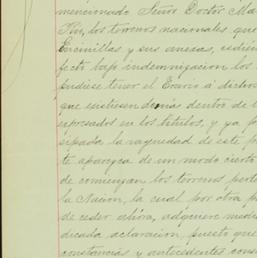 mencionado Señor Doctor Ma
los terrenos nacionales que
Encinillas y sus anexas,
fecto bajo indemnización los
pudiese tener el Erario á dichos
que existiesen demás dentro de l
expresados en los títulos, y ya p
sipada la vaguedad de este p
te aparezca de un modo cierto
de comienzan los terrenos perte
la Nación, la cual por otra p
de ceder ahora, adquiere
dicada aclaración puesto que
constancias y antecedentes cons